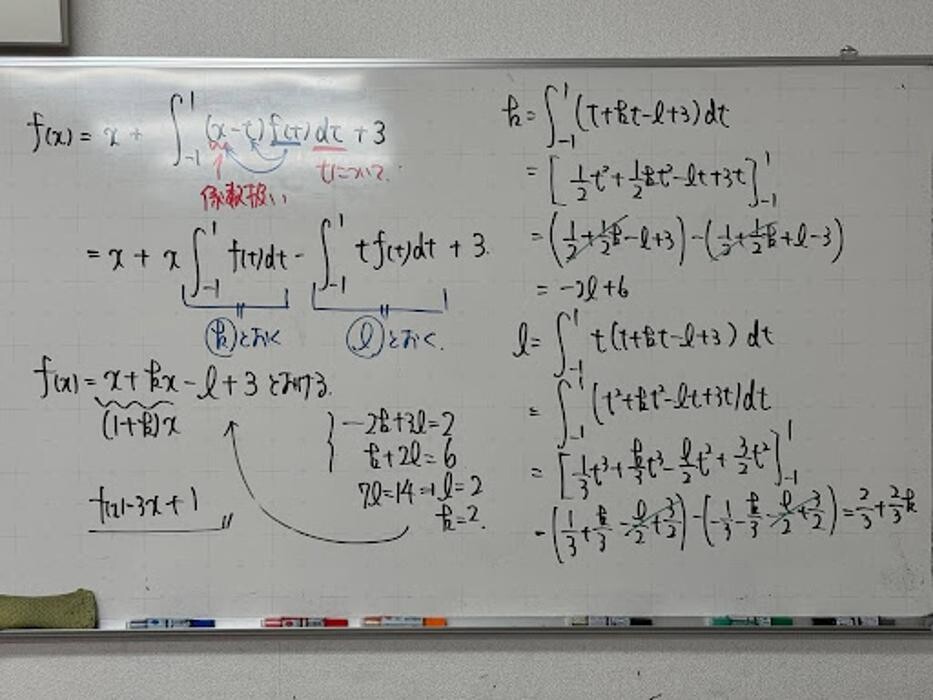 f(x) = x + ∫_{-1}^{1} (x-t)f(t)dt + 3
係数扱い
tについて
= x + x∫_{-1}^{1} f(t)dt - ∫_{-1}^{1} tf(t)dt + 3.
kとおく
lとおく.
f(x) = x + kx - l + 3 とおける.
(1+k)x
{ -2k+3l=2
k+2l=6
7l=14 → l=2
k=2.
f(x)=3x+1
k = ∫_{-1}^{1} (t+kt-l+3)dt
= [1/2 t² + 1/2 kt² - lt + 3t]_{-1}^{1}
= (1/2 + 1/2 k - l + 3) - (1/2 + 1/2 k + l - 3)
= -2l+6
l = ∫_{-1}^{1} t(t+kt-l+3) dt
= ∫_{-1}^{1} (t²+kt²-lt+3t)dt
= [1/3 t³ + k/3 t³ - l/2 t² + 3/2 t²]_{-1}^{1}
= (1/3 + k/3 - l/2 + 3/2) - (-1/3 - k/3 - l/2 + 3/2) = 2/3 + 2/3 k